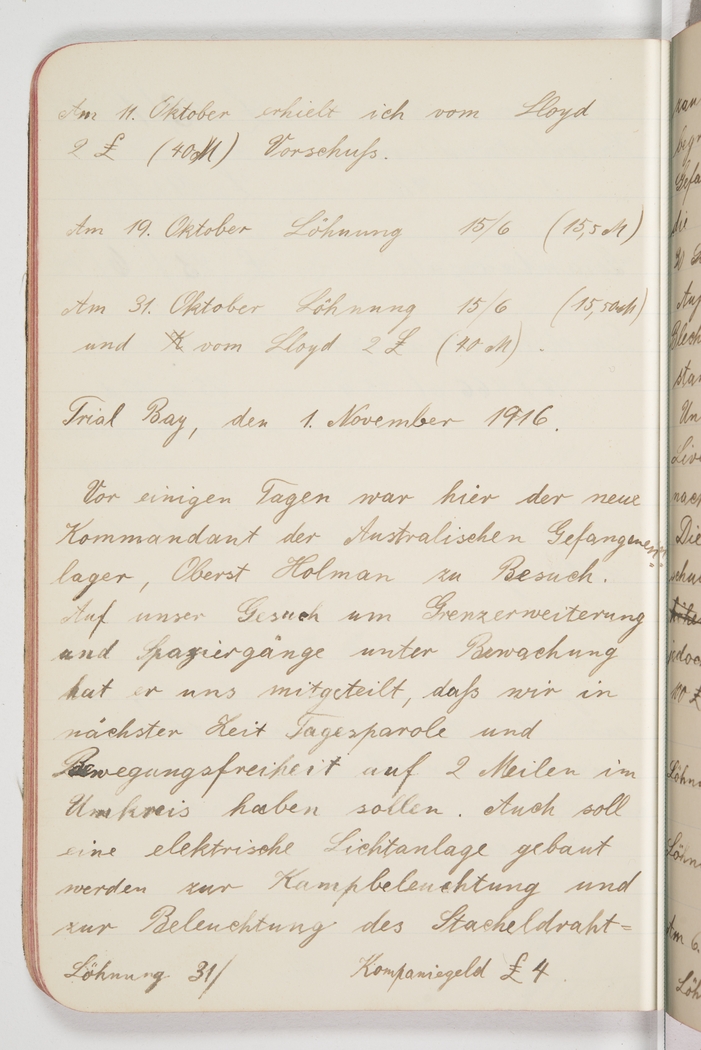 Am 11. Oktober erhielt ich vom Lloyd
2 £ (40 M) Vorschuſs.
Am 19. Oktober Löhnung 15/6 (15,5 M)
Am 31. Oktober Löhnung 15/6 (15,50 M)
und vom Lloyd 2 £ (40 M).
Trial Bay, den 1. November 1916.
Vor einigen Tagen war hier der neue
Kommandant der Australischen Gefangenen=
lager, Oberst Holman zu Besuch.
Auf unser Gesuch um Grenzerweiterung
und Spaziergänge unter Bewachung
hat er uns mitgeteilt, daſs wir in
nächster Zeit Tagesparole und
Bewegungsfreiheit auf 2 Meilen im
Umkreis haben sollen. Auch soll
eine elektrische Lichtanlage gebaut
werden zur Kampbeleuchtung und
zur Beleuchtung des Stacheldraht=
Löhnung 31/ Kompaniegeld £ 4.